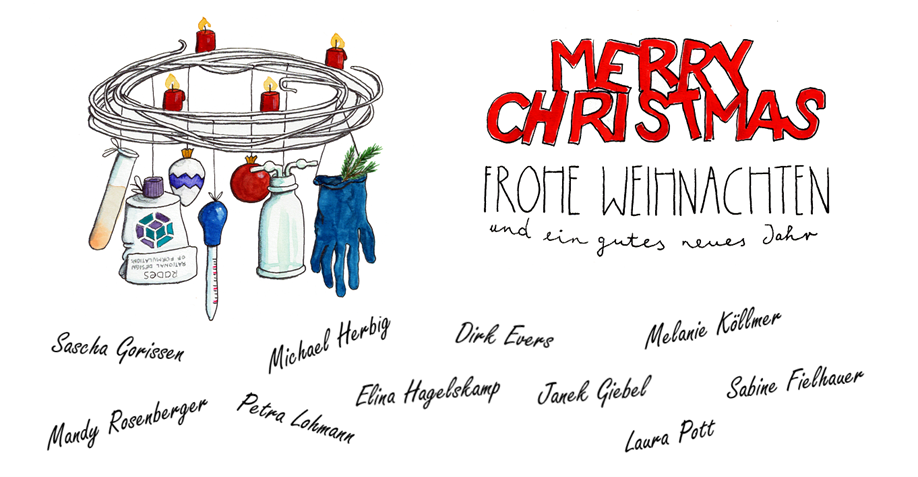 MERRY
CHRISTMAS
FROHE WEIHNACHTEN
und ein gutes neues Jahr
RADES
RATIONAL DESIGN
OF FORMULATION
Sascha Gorissen
Michael Herbig
Dirk Evers
Melanie Köllmer
Mandy Rosenberger
Petra Lohmann
Elina Hagelskamp
Janek Giebel
Sabine Fielhauer
Laura Pott